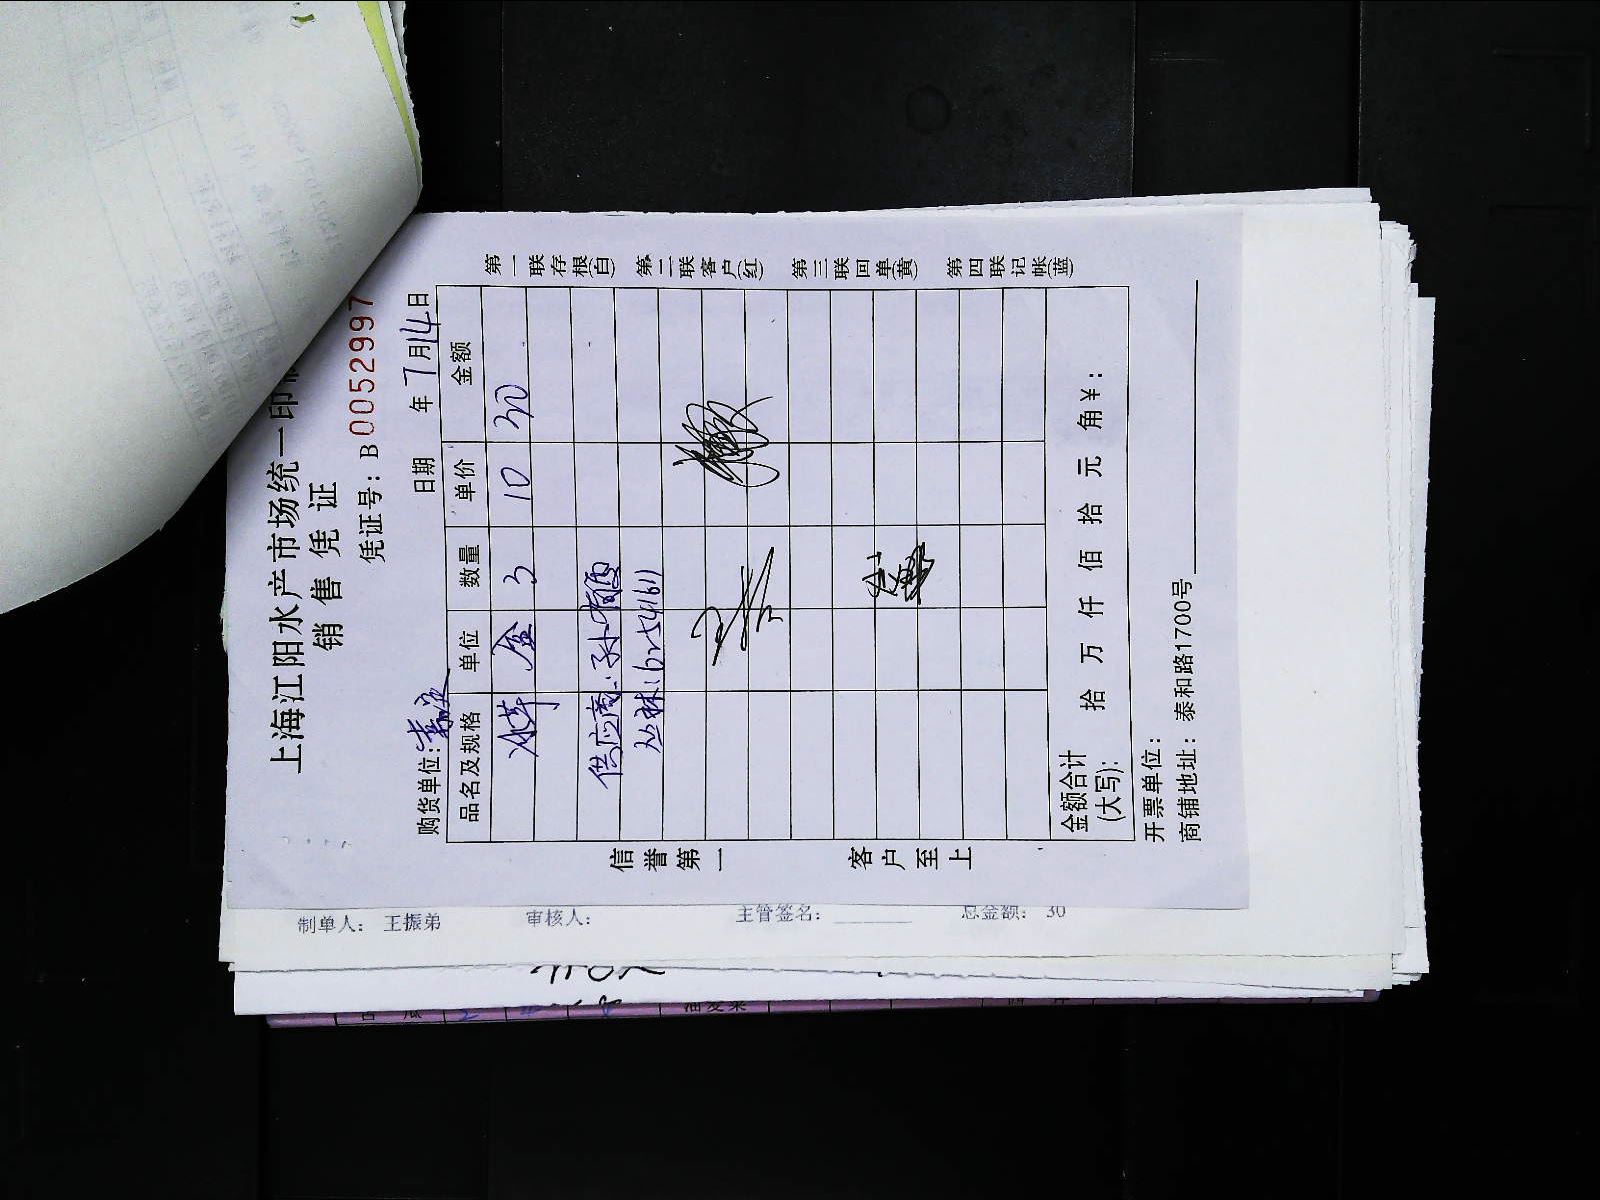 上海江阳水产市场统一印
销售凭证
凭证号：B0052997
购货单位： 日期 年7月14日
品名及规格 单位 数量 单价 金额
盒 3 10 30
供应商：孙
丛林：6254611
金额合计(大写)： 拾 万 仟 佰 拾 元 角 ¥：
开票单位：
商铺地址：泰和路1700号
第一联存根(白) 第二联客户(红) 第三联回单(黄) 第四联记帐(蓝)
信誉第一 客户至上
制单人： 王振弟 审核人： 主管签名： 总金额： 30
油麦菜